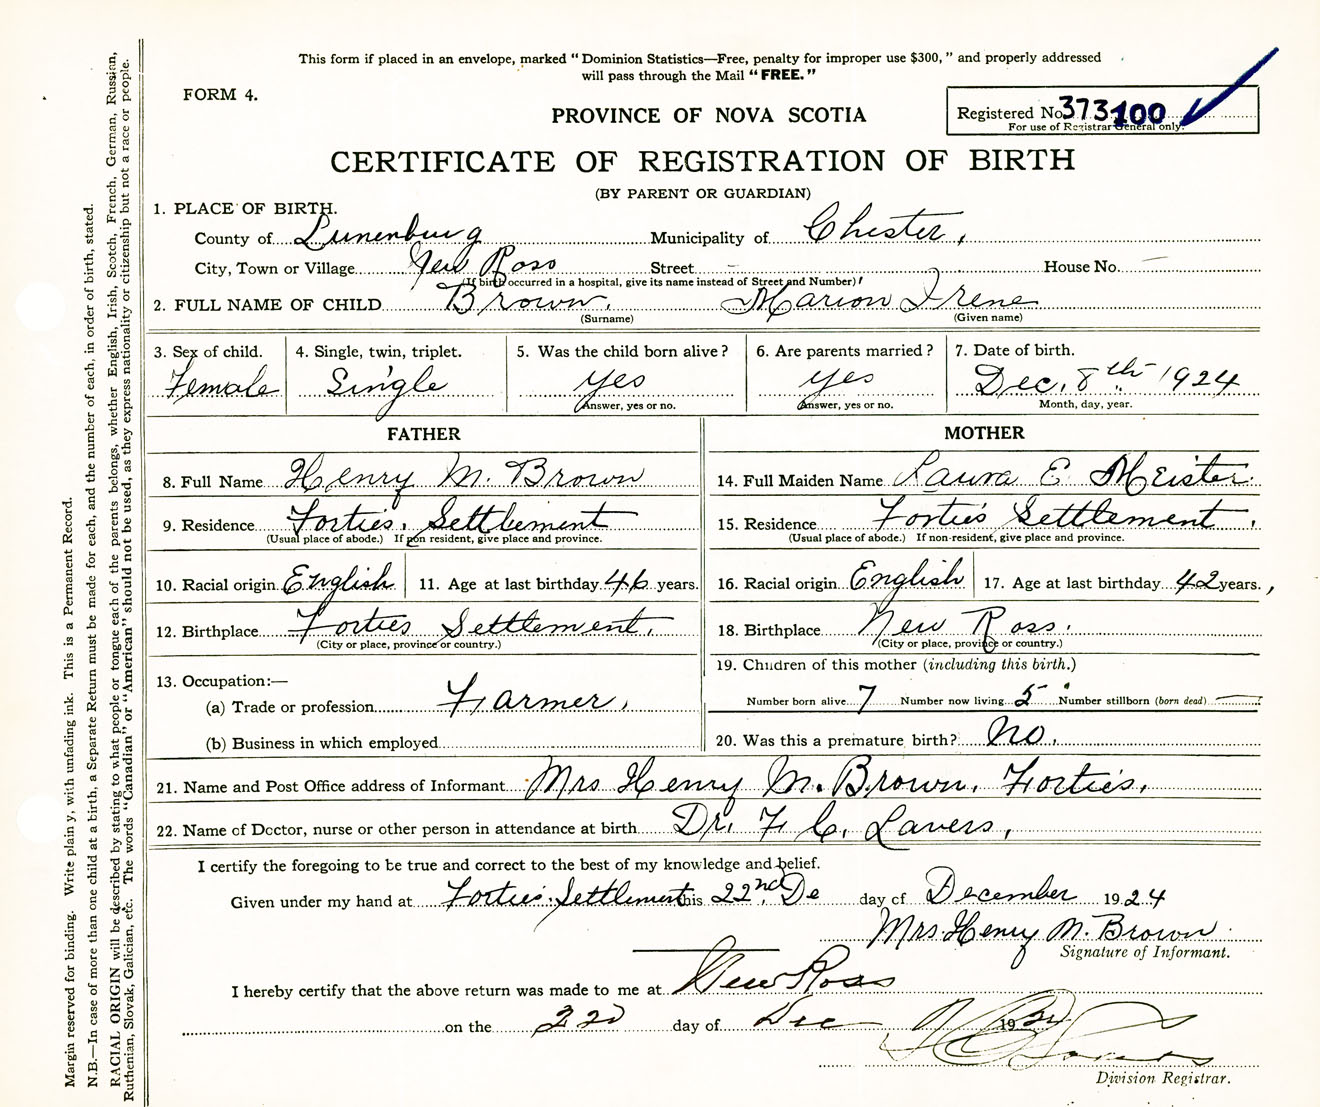 This form if placed in an envelope, marked "Dominion Statistics—Free, penalty for improper use $300," and properly addressed
will pass through the Mail "FREE."
FORM 4.
PROVINCE OF NOVA SCOTIA
Registered No. 373100
For use of Registrar General only.
CERTIFICATE OF REGISTRATION OF BIRTH
(BY PARENT OR GUARDIAN)
1. PLACE OF BIRTH.
County of Lunenburg Municipality of Chester,
City, Town or Village New Ross Street — House No. —
(If birth occurred in a hospital, give its name instead of Street and Number)
2. FULL NAME OF CHILD Brown, Marion Irene
(Surname) (Given name)
3. Sex of child. 4. Single, twin, triplet. 5. Was the child born alive? 6. Are parents married? 7. Date of birth.
Female Single yes yes Dec. 8th 1924
Answer, yes or no. Answer, yes or no. Month, day, year.
FATHER MOTHER
8. Full Name Henry M. Brown 14. Full Maiden Name Laura E Meister.
9. Residence Forties, Settlement 15. Residence Forties Settlement,
(Usual place of abode.) If non resident, give place and province. (Usual place of abode.) If non-resident, give place and province.
10. Racial origin English 11. Age at last birthday 46 years. 16. Racial origin English 17. Age at last birthday 42 years.,
12. Birthplace Forties Settlement. 18. Birthplace New Ross.
(City or place, province or country.) (City or place, province or country.)
19. Children of this mother (including this birth.)
13. Occupation:—
(a) Trade or profession Farmer, Number born alive 7 Number now living 5 Number stillborn (born dead) —
(b) Business in which employed 20. Was this a premature birth? No.
21. Name and Post Office address of Informant Mrs Henry M. Brown, Forties,
22. Name of Doctor, nurse or other person in attendance at birth Dr. F C. Lavers,
I certify the foregoing to be true and correct to the best of my knowledge and belief.
Given under my hand at Forties Settlement this 22nd, De day of December 1924
Mrs. Henry M. Brown
Signature of Informant.
I hereby certify that the above return was made to me at New Ross
on the 22d day of Dec 19
Division Registrar.
Margin reserved for binding. Write plainly, with unfading ink. This is a Permanent Record.
N.B.—In case of more than one child at a birth, a Separate Return must be made for each, and the number of each, in order of birth, stated.
RACIAL ORIGIN will be described by stating to what people or tongue each of the parents belongs, whether English, Irish, Scotch, French, German, Russian,
Ruthenian, Slovak, Galician, etc. The words "Canadian" or "American" should not be used, as they express nationality or citizenship but not a race or people.